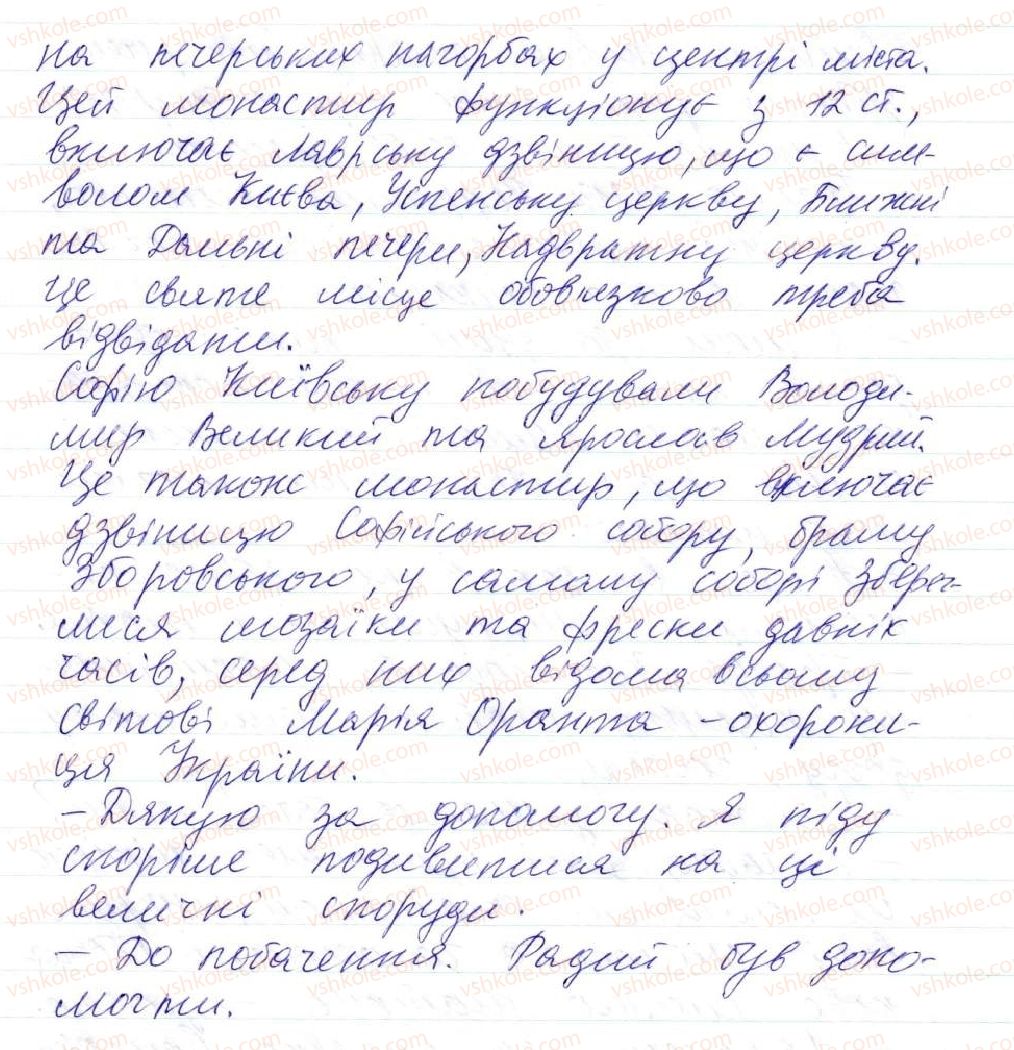 на печерських пагорбах у центрі міста.
Цей монастир функціонує з 12 ст.,
включає Лаврську дзвіницю, що є сим-
волом Києва, Успенську церкву, Ближні
та Дальні печери, Надвратну церкву.
Це святе місце обов'язково треба
відвідати.
Софію Київську побудували Володи-
мир Великий та Ярослав Мудрий.
Це також монастир, що включає
дзвіницю Софійського собору, браму
Зборовського, у самому соборі зберег-
лися мозаїки та фрески давніх
часів, серед них відома всьому
світові Марія Оранта – охорони-
ця України.
– Дякую за допомогу. Я піду
скоріше подивитися на ці
величні споруди.
– До побачення. Радий був допо-
могти.